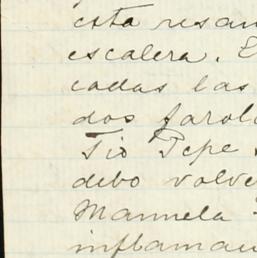 esta resan
escalera. E
cadas las
dos farol
Tio Pepe
debo volve
Manuela
inflaman